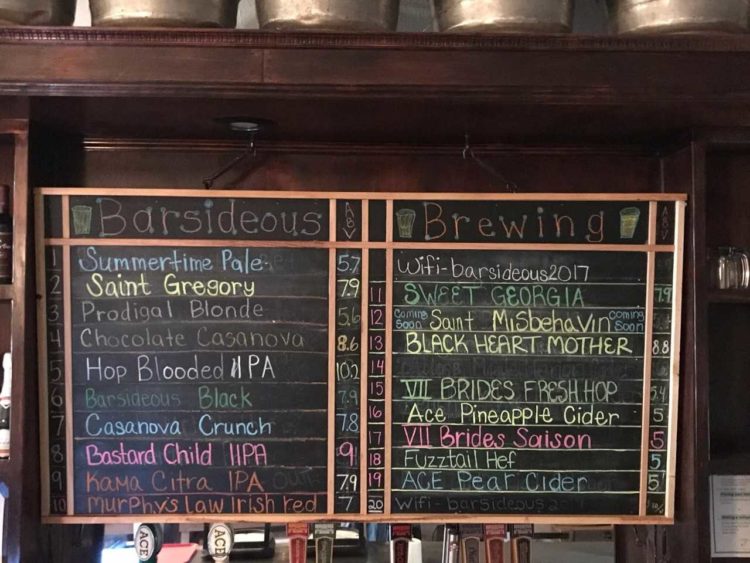 Barsideous ABV
1 Summertime Pale 5.7
2 Saint Gregory 7.9
3 Prodigal Blonde 5.6
4 Chocolate Casanova 8.6
5 Hop Blooded IIPA 10.2
6 Barsideous Black 7.9
7 Casanova Crunch 7.8
8 Bastard Child IIPA 9
9 Kama Citra IPA Out 7.9
10 Murphy's Law Irish red 7
Brewing ABV
Wifi-barsideous2017
11 SWEET GEORGIA 7.9
12 Coming Soon Saint MisBehaVin Coming Soon
13 BLACK HEART MOTHER 8.8
14
15 VII BRIDES FRESH HOP 5.4
16 Ace Pineapple Cider 5
17 VII Brides Saison 5
18 Fuzztail Hef 5
19 ACE Pear Cider 5
20 Wifi-barsideous2
ACE
ACE